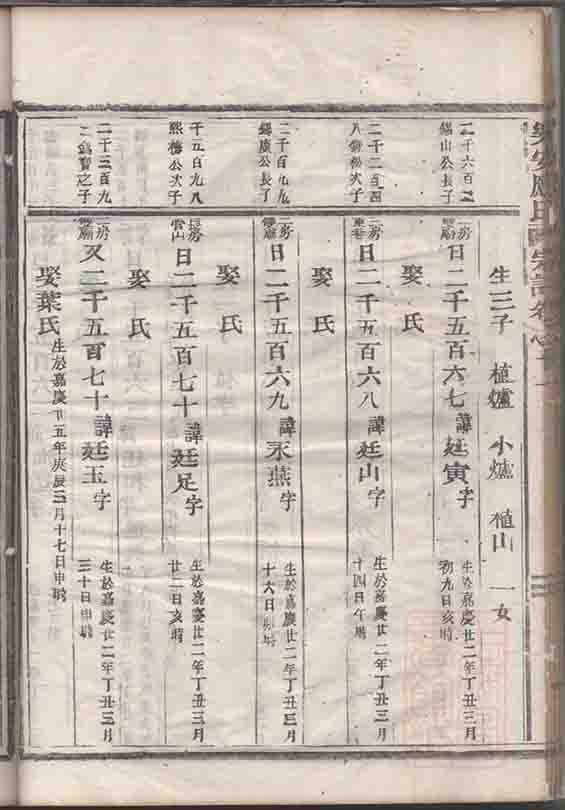 生三子 植爐 小爐 植山 一女
二千六百二
錫山公長子
二房
日二千五百六七諱廷寅字
生於嘉慶廿二年丁丑三月
初九日亥時
娶 氏
二千二百四
次子
二房
日二千五百六八諱廷山字
生於嘉慶廿二年丁丑三月
十四日午時
娶 氏
二千百九九
錫康公長子
二房
日二千五百六九諱永燕字
生於嘉慶廿二年丁丑三月
十六日卯時
娶 氏
千五百九八
熙梅公次子
房
日二千五百七十諱廷足字
生於嘉慶廿二年丁丑三月
廿二日亥時
娶 氏
二千三百九
之子
二房
又二千五百七十諱廷玉字
生於嘉慶廿二年丁丑三月
三十日申時
娶葉氏
生於嘉慶廿五年庚辰三月十七日申時